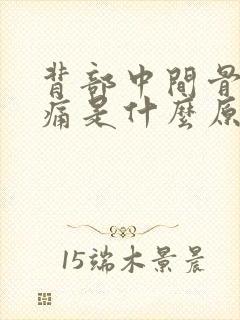 背部中間骨
痛是什麼原
15端木景晨